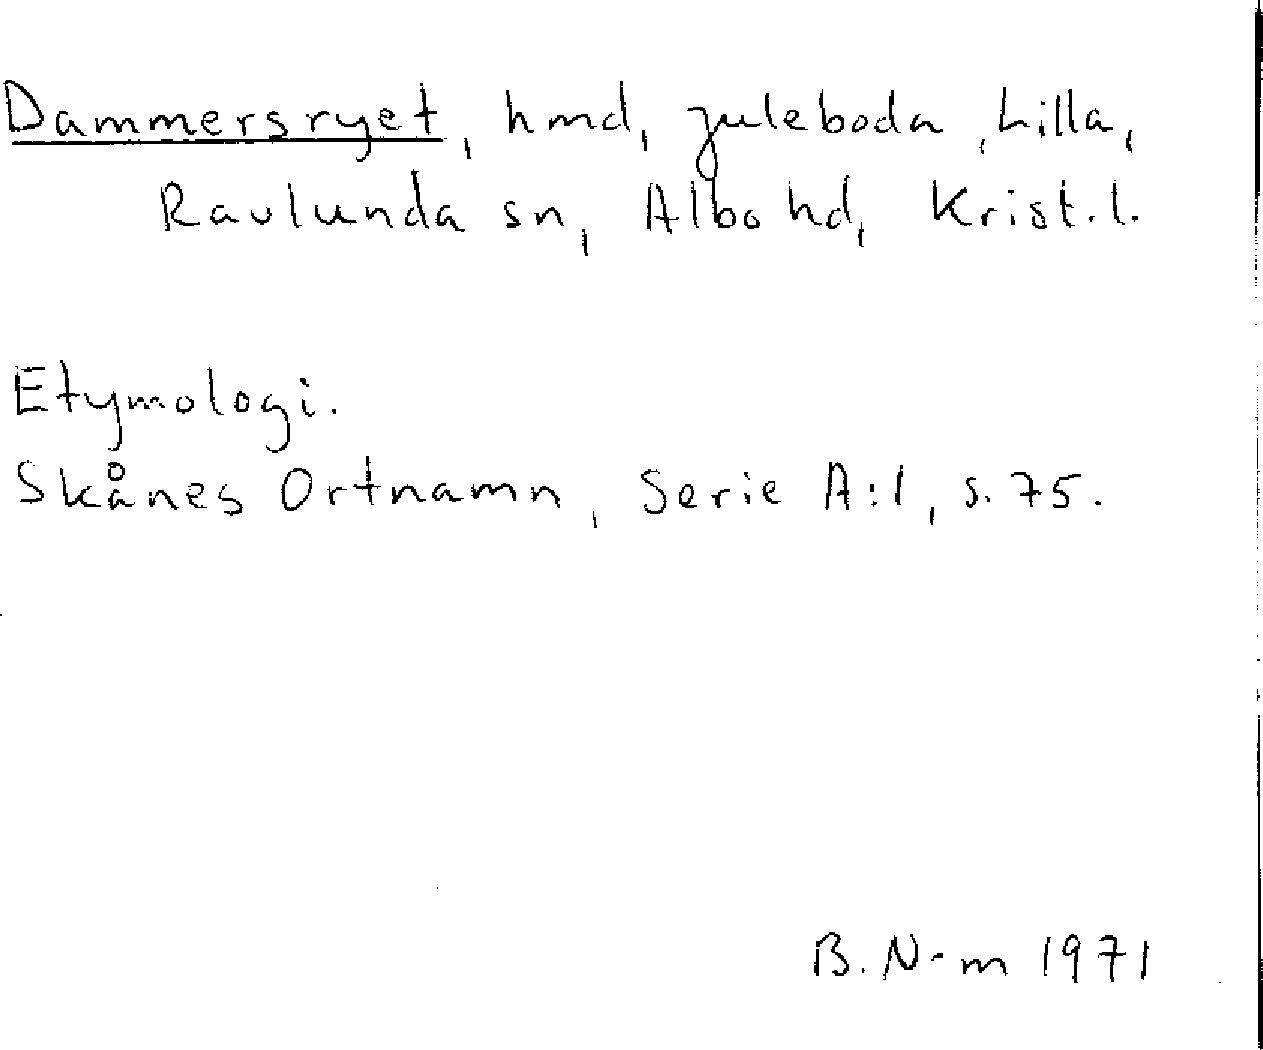 Dammersryet, hmd, Juleboda, Lilla,
Ravlunda sn, Albo hd, Krist.l.
Etymologi.
Skånes Ortnamn, Serie A:1, s. 75.
B. N-m 1971